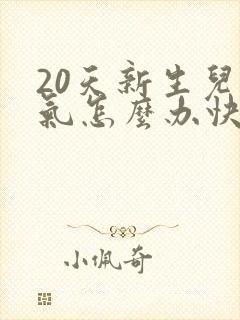 20天新生兒
氣怎麼办快
小佩奇